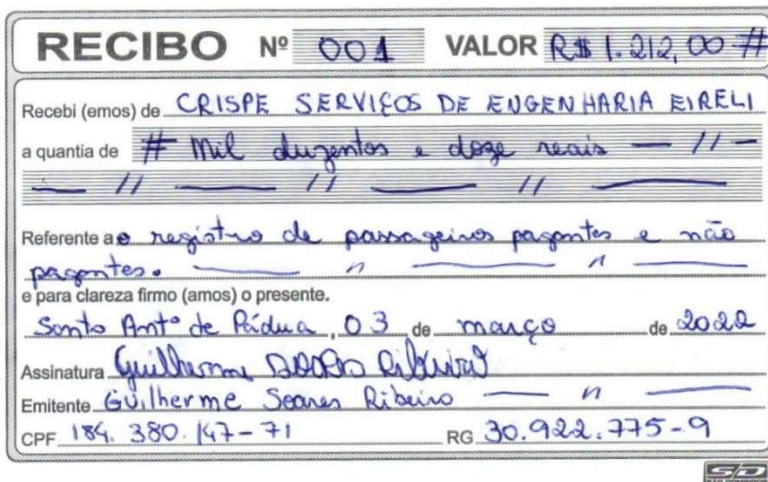 RECIBO Nº 001 VALOR R$ 1.212,00 #
Recebi (emos) de CRISPE SERVIÇOS DE ENGENHARIA EIRELI
a quantia de # Mil duzentos e doze reais — // —
— // — // — // —
Referente a o registro de passageiros pagantes e não
pagantes. — // — // —
e para clareza firmo (amos) o presente.
Santo Antº de Pádua, 03 de março de 2022
Assinatura Guilherme Soares Ribeiro
Emitente Guilherme Soares Ribeiro — // —
CPF 184.380.147-71 RG 30.922.775-9
SD
SÃO DOMINGOS